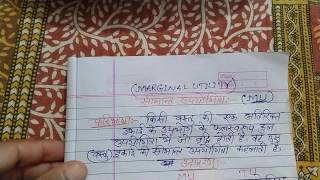 (MARGINAL UTILITY)
सीमान्त उपयोगिता:- (MU)
परिभाषा:- किसी वस्तु की एक अतिरिक्त
इकाई के उपभोग के फलस्वरूप कुल
उपयोगिता में जो वृद्धि होती है वह उस
(वस्तु) इकाई की सीमान्त उपयोगिता कहलाती है।
उदाहरण:-
MU TU